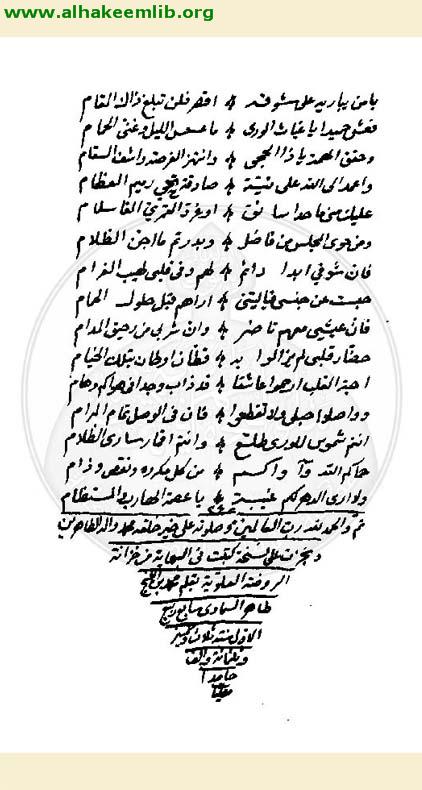 www.alhakeemlib.org
يا من يباريه على سؤدد * اقصر فلن تبلغ ذاك المقام
فعش حميدا يا غياث الورى * ما عسعس الليل وغنى الحمام
وحقق المهمة يا ذا الحجى * وانتهز الفرصة واشف السقام
واعمد الى الله على نية * صادقة تحيي رميم العظام
عليك مني ما حدا سائق * او غرد القمري الف سلام
ومن حوى المجلس من فاضل * وبدر تم ما اجن الظلام
فان شوقي ابدا دائم * لهم وفي قلبي لهيب الغرام
حبست عن جنسي فيا ليتني * اراهم قبل حلول الحمام
فان عيشي معهم ناضر * وان شربي من رحيق المدام
حضار قلبي لم يزالوا به * قطان اوطان بتلك الخيام
احبة القلب ارحموا عاشقا * قد ذاب وجدا في هواكم وهام
وواصلوا حبلي ولا تقطعوا * فان في الوصل تمام المرام
انتم شموس للورى طلع * وانتم اقمار ساري الظلام
حاكم الله وآواكم * من كل مكروه ونقص وذام
ولا ارى الدهر لكم غيبة * يا عصمة الهارب المستظام
تم والحمد لله رب العالمين وصلوته على خير خلقه محمد واله الطاهرين
وجرت على نسخة كتبت في النهاية من خزانة
الروضة العلوية بقلم محمد بن الشيخ
طاهر السماوي سابع ربيع
الاول سنة ثلاث
وثلثمائة والف
حامدا
مصليا